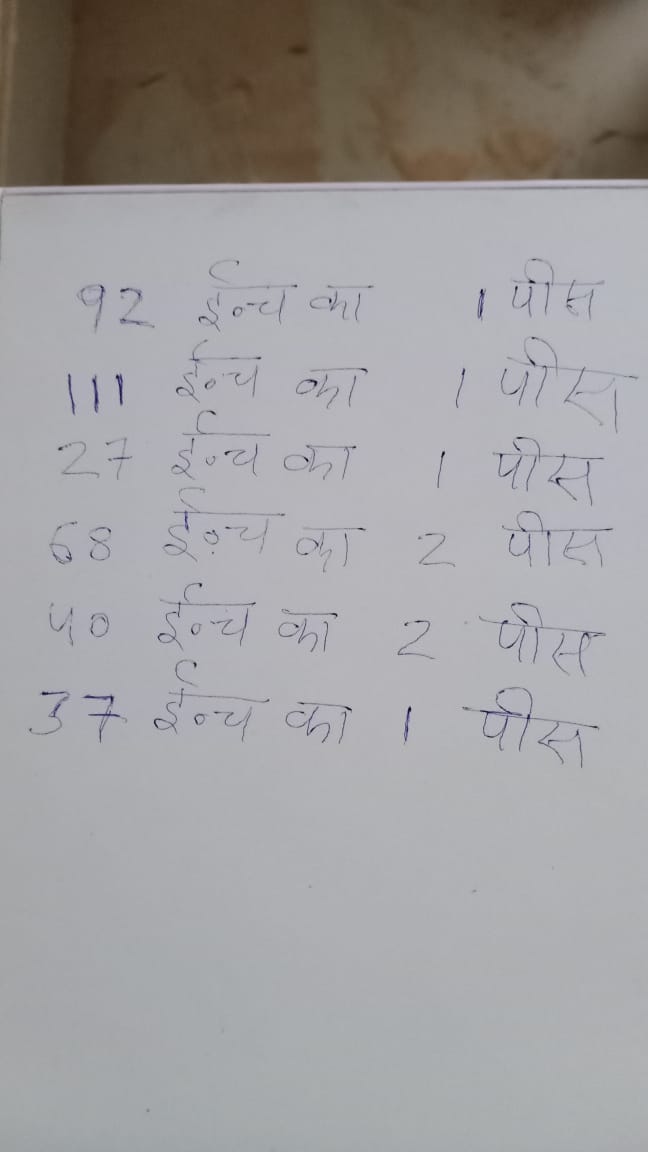 92 ईन्च का 1 पीस
111 ईन्च का 1 पीस
27 ईन्च का 1 पीस
68 ईन्च का 2 पीस
40 ईन्च का 2 पीस
37 ईन्च का 1 पीस